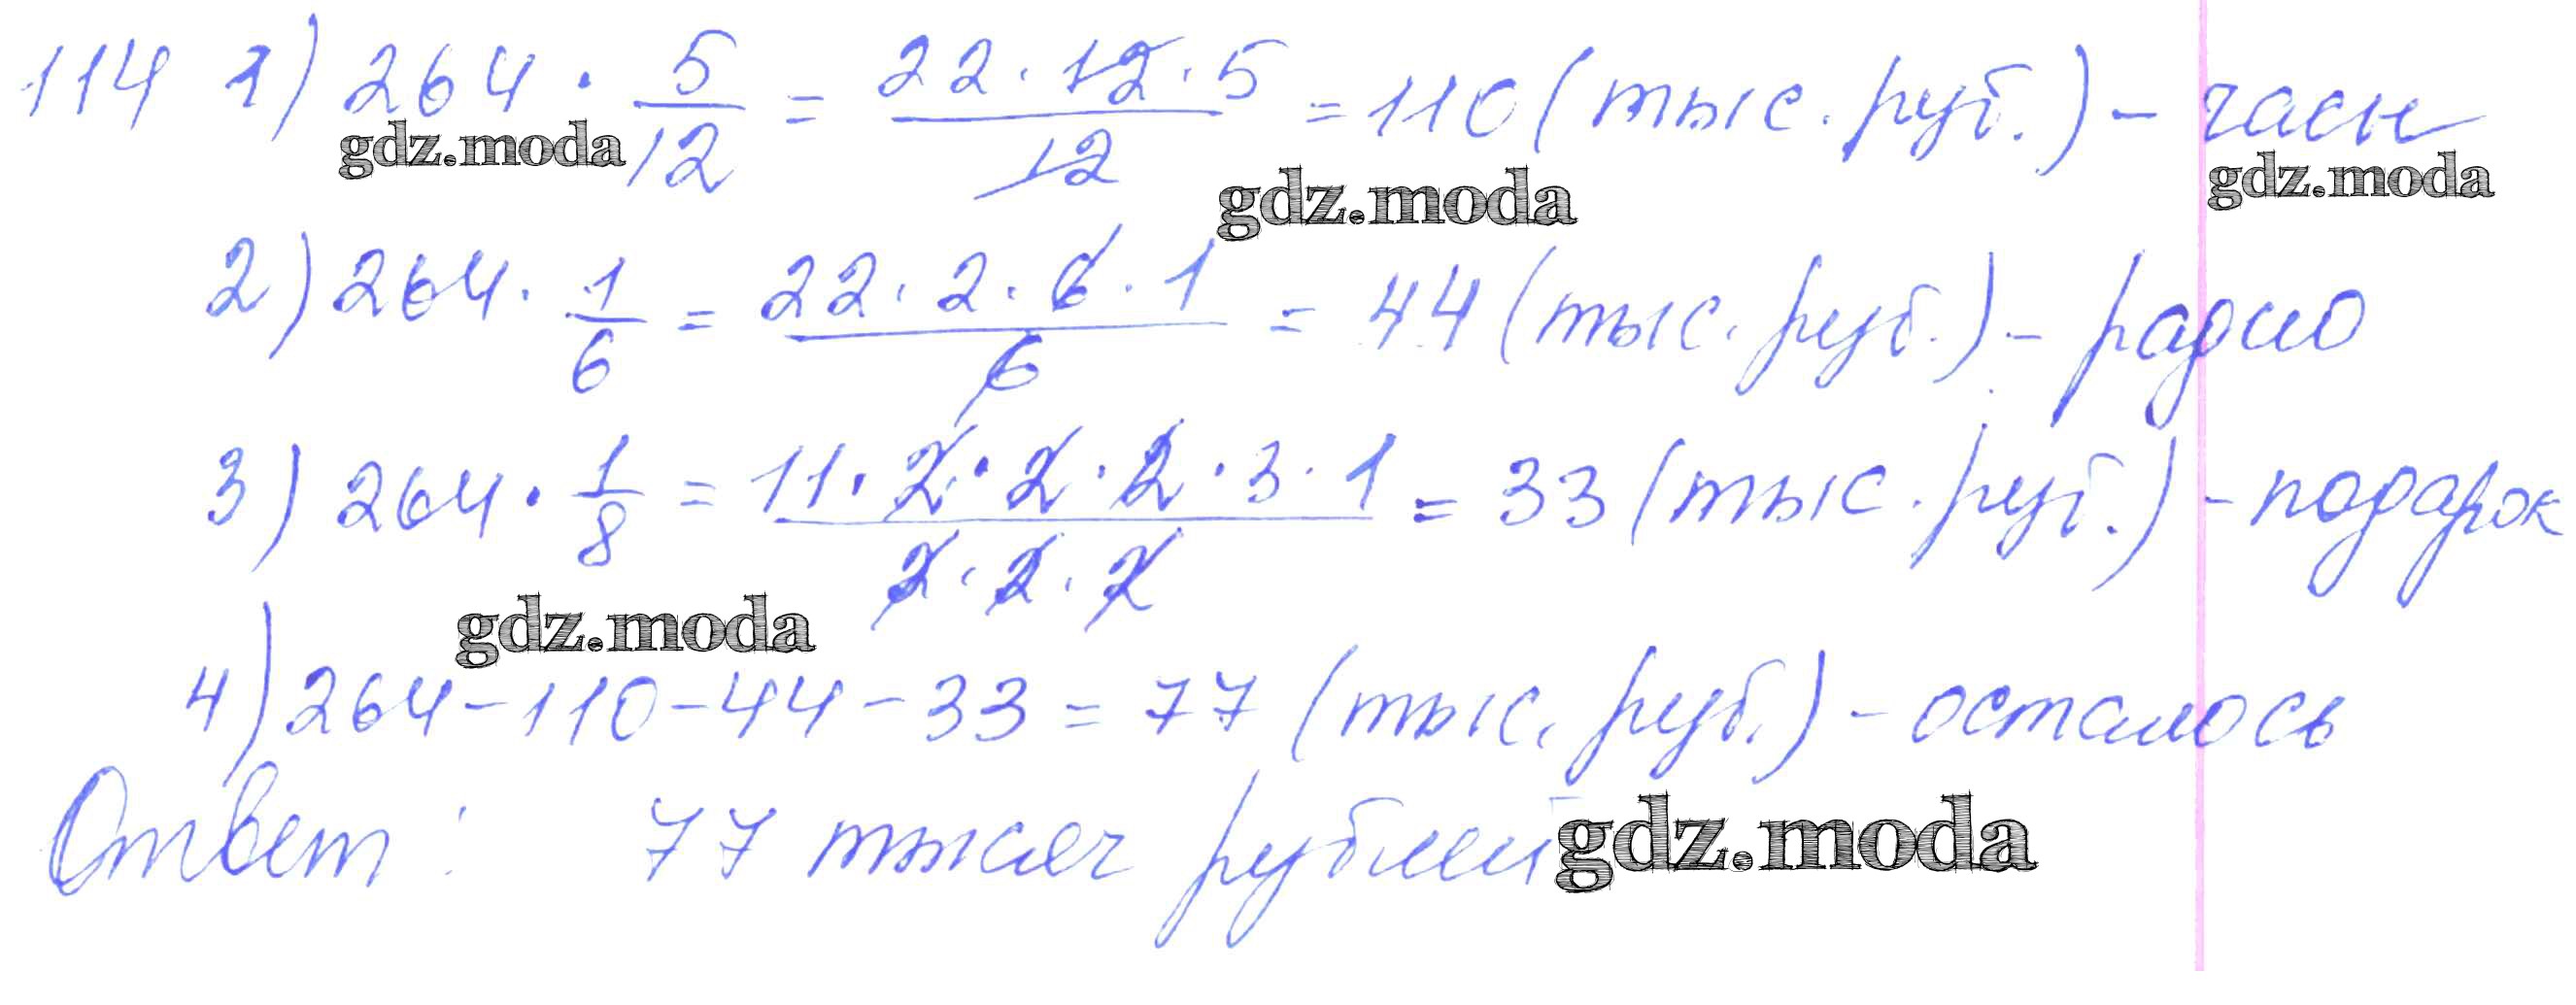 114 1) 264 · 5/12 = 22 · 12 · 5/12 = 110 (тыс. руб.) - часы
gdz.moda gdz.moda gdz.moda
2) 264 · 1/6 = 22 · 2 · 6 · 1/6 = 44 (тыс. руб.) - радио
3) 264 · 1/8 = 11 · 2 · 2 · 2 · 3 · 1/2 · 2 · 2 = 33 (тыс. руб.) - подарок
gdz.moda
4) 264 - 110 - 44 - 33 = 77 (тыс. руб.) - осталось
Ответ: 77 тысяч рублей gdz.moda